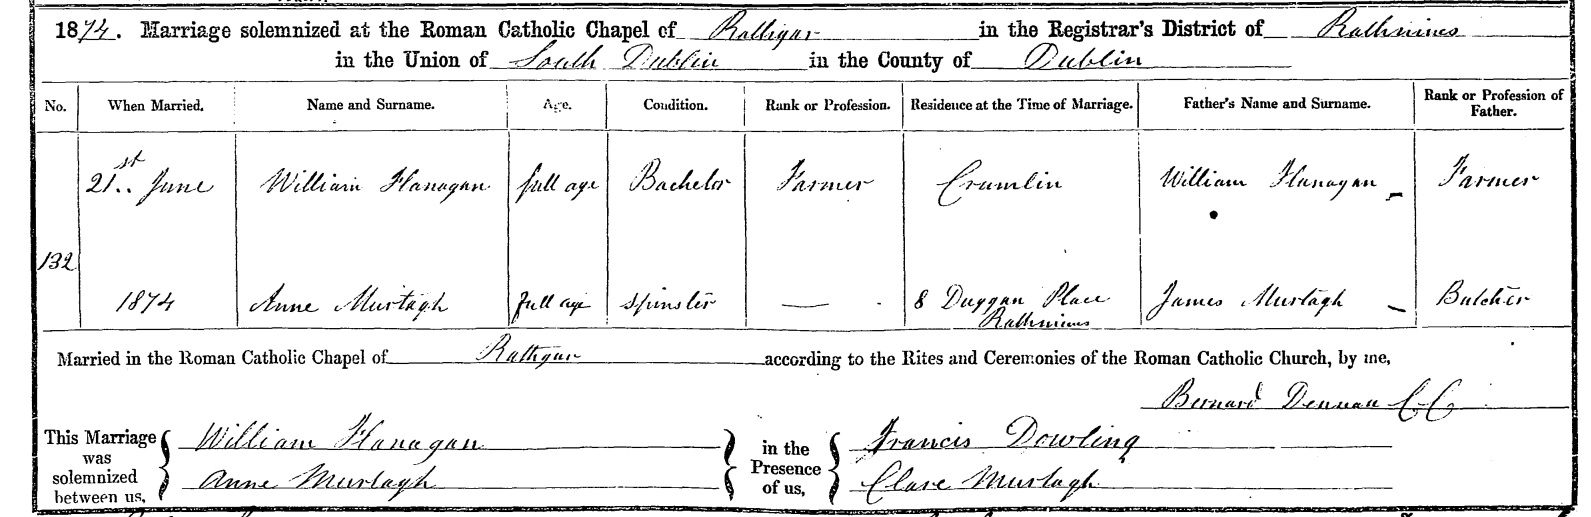 1874. Marriage solemnized at the Roman Catholic Chapel of Rathgar in the Registrar's District of Rathmines
in the Union of South Dublin in the County of Dublin
No. When Married. Name and Surname. Age. Condition. Rank or Profession. Residence at the Time of Marriage. Father's Name and Surname. Rank or Profession of Father.
21st June William Flanagan full age Bachelor Farmer Crumlin William Flanagan Farmer
132
1874 Anne Murtagh full age Spinster — 8 Duggan Place Rathmines James Murtagh Butcher
Married in the Roman Catholic Chapel of Rathgar according to the Rites and Ceremonies of the Roman Catholic Church, by me,
Bernard Dennan CC
This Marriage was solemnized between us, William Flanagan in the Presence of us, Francis Dowling
Anne Murtagh Clare Murtagh